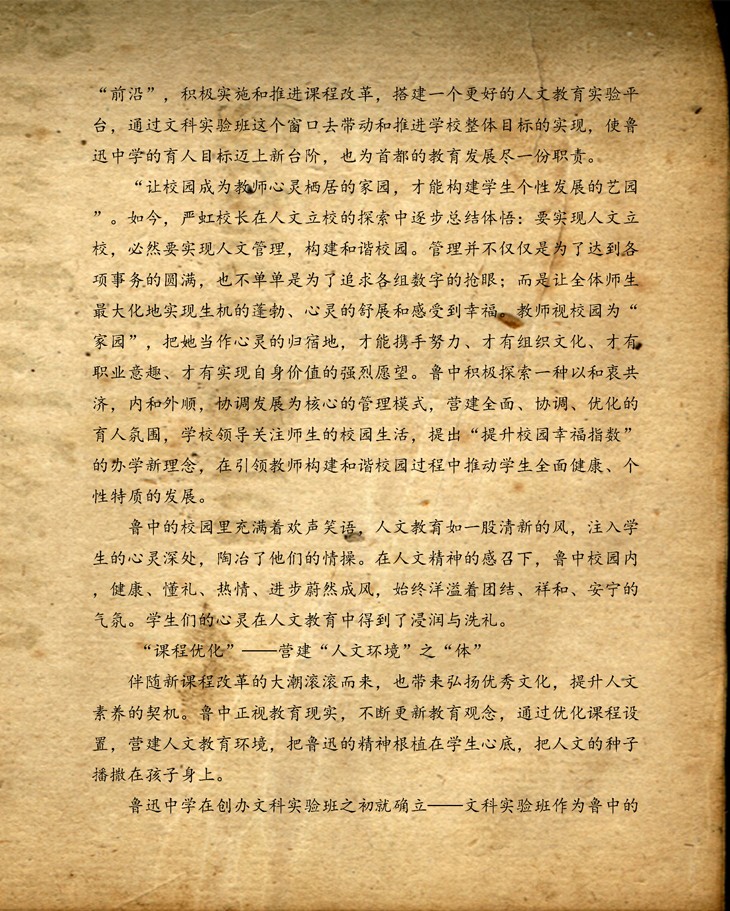 “前沿”，积极实施和推进课程改革，搭建一个更好的人文教育实验平
台，通过文科实验班这个窗口去带动和推进学校整体目标的实现，使鲁
迅中学的育人目标迈上新台阶，也为首都的教育发展尽一份职责。
“让校园成为教师心灵栖居的家园，才能构建学生个性发展的艺园
”。如今，严虹校长在人文立校的探索中逐步总结体悟：要实现人文立
校，必然要实现人文管理，构建和谐校园。管理并不仅仅是为了达到各
项事务的圆满，也不单单是为了追求各组数字的抢眼；而是让全体师生
最大化地实现生机的蓬勃、心灵的舒展和感受到幸福。教师视校园为“
家园”，把她当作心灵的归宿地，才能携手努力、才有组织文化、才有
职业意趣、才有实现自身价值的强烈愿望。鲁中积极探索一种以和衷共
济，内和外顺，协调发展为核心的管理模式，营建全面、协调、优化的
育人氛围，学校领导关注师生的校园生活，提出“提升校园幸福指数”
的办学新理念，在引领教师构建和谐校园过程中推动学生全面健康、个
性特质的发展。
鲁中的校园里充满着欢声笑语，人文教育如一股清新的风，注入学
生的心灵深处，陶冶了他们的情操。在人文精神的感召下，鲁中校园内
，健康、懂礼、热情、进步蔚然成风，始终洋溢着团结、祥和、安宁的
气氛。学生们的心灵在人文教育中得到了浸润与洗礼。
“课程优化”——营建“人文环境”之“体”
伴随新课程改革的大潮滚滚而来，也带来弘扬优秀文化，提升人文
素养的契机。鲁中正视教育现实，不断更新教育观念，通过优化课程设
置，营建人文教育环境，把鲁迅的精神根植在学生心底，把人文的种子
播撒在孩子身上。
鲁迅中学在创办文科实验班之初就确立——文科实验班作为鲁中的